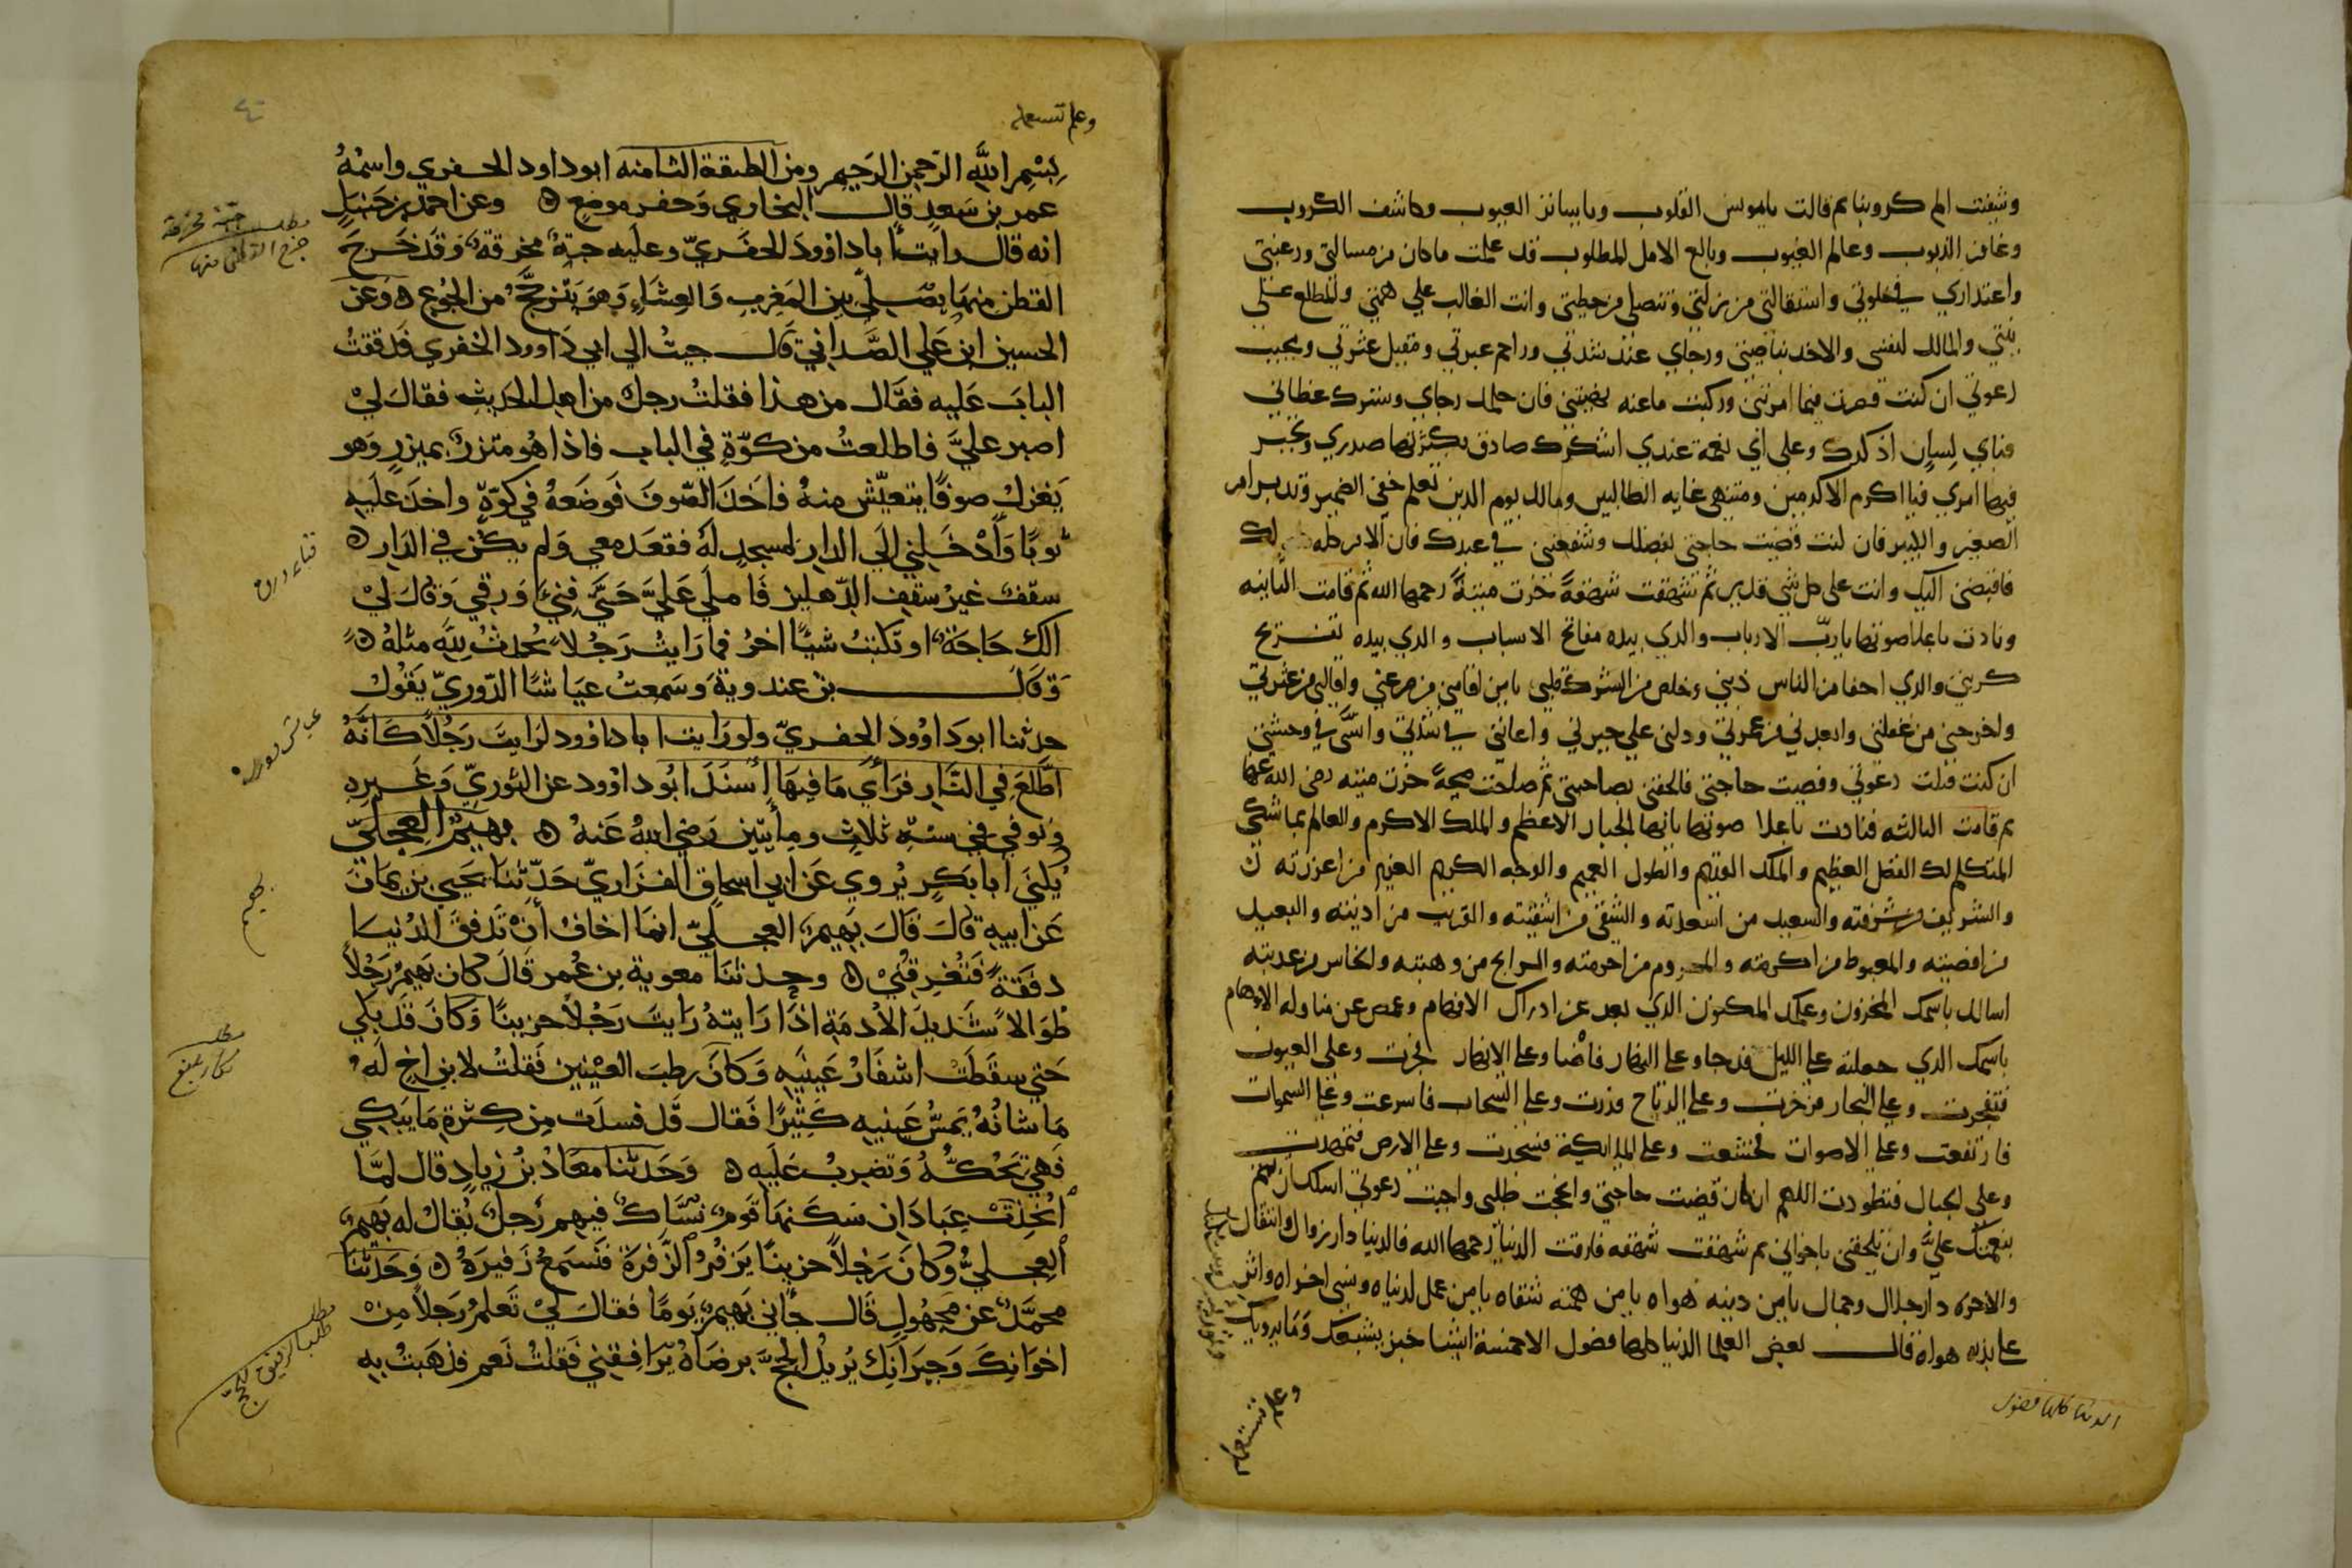 وشفيت الم كروبنا ثم قالت يا مونس القلوب ويا ساتر العيوب وكاشف الكروب
وغافر الذنوب وعالم الغيوب وبالغ الامل المطلوب قد علمت ما كان من مسالتي ورغبتي
واعتذاري في خلوتي واستقالتي من زلتي وتنصلي من خطيتي وانت الغالب علي همتي والمطلع على
نيتي والمالك لنفسي والاخد بناصيتي ورجاي عند شدتي وراحم عبرتي ومقيل عثرتي ومجيب
دعوتي ان كنت قصرت فيما امرتني وركبت ما عنه نهيتني فان حلمك رجاي وسترك غطاني
فباي لسان اذكرك وعلى اي نعمة عندي اشكرك ضاق بكثرتها صدري وتحير
فيها امري فيا اكرم الاكرمين ومنتهى غايه الطالبين ومالك يوم الدين تعلم خفي الضمير وتدبر امر
الصغير والكبير فان كنت قضيت حاجتي بفضلك وشفعتني في عبدك فان الامر كله لك
فاقبضني اليك وانت على كل شي قدير ثم شهقت شهقة خرت ميتة رحمها الله ثم قامت الثانيه
ونادت باعلا صوتها يا رب الارباب والذي بيده مفاتح الاسباب والذي بيده تفريج
كربتي والذي اخفا من الناس ذنبي وخلص من الشرك قلبي يا من اقامني من صرعتي واقالني من عثرتي
واخرجني من غفلتي وابعدني من غمرتي ودلني علي حيرتي واعانني في شدتي وانسي في وحشتي
ان كنت قبلت دعوتي وقضيت حاجتي فالحقني بصاحبتي ثم صاحت صيحة خرت ميته رضى الله عنها
ثم قامت الثالثه فنادت باعلا صوتها يا ايها الجبار الاعظم والملك الاكرم والعالم بما شكي
المتكلم لك الفضل العظيم والملك القديم والطول العميم والوجه الكريم العزيز من اعززته
والشريف من شرفته والسعيد من اسعدته والشقي من اشقيته والقريب من ادنيته والبعيد
من اقصيته والمغبوط من اكرمته والمحروم من احرمته والرابح من وهبته والخاسر من عذبته
اسالك باسمك المخزون وعلمك المكنون الذي بعد عن ادراك الافهام وغمض عن مناولة الاوهام
باسمك الذي جعلته على الليل فدجا وعلى النهار فاضا وعلى الانهار فجرت وعلى العيون
فتفجرت وعلى البحار فزخرت وعلى الرياح فذرت وعلى السحاب فاسرعت وعلى السموات
فارتفعت وعلى الاصوات فخشعت وعلى الملايكة فسجدت وعلى الارض فتمهدت
وعلى الجبال فتطودت اللهم ان كان قضيت حاجتي وانجحت طلبي واجبت دعوتي اسلك ان تتم
بنعمتك علي وان تلحقني باخواني ثم شهقت شهقه فارقت الدنيا رحمها الله فالدنيا دار زوال وانتقال
والاخره دار جلال وجمال يا من دينه هواه يا من همته شقاه يا من عمل لدنياه ونسى اخراه واثر
على دينه هواه قال بعض العلما الدنيا كلها فضول الا خمسة اشيا خبز يشبعك وما يرويك
وعلم تستعمله
الدنيا كلها فضول
وعلم تستعمله
بسم الله الرحمن الرحيم ومن الطبقة الثامنه ابو داود الحفري واسمه
عمر بن سعد قال البخاري وحفر موضع ه وعن احمد بن حنبل
انه قال رايت ابا داوود الحفري وعليه جبة مخرقة وقد خرج
القطن منها يصلي بين المغرب والعشاء وهو يترجح من الجوع ه وعن
الحسين ابن علي الصداني قال جيت الي ابي داوود الحفري فدققت
الباب عليه فقال من هذا فقلت رجل من اهل الحديث فقال لي
اصبر علي فاطلعت من كوة في الباب فاذا هو متزر بميزر وهو
يغزل صوفا يتعيش منه فاخذ الصوف فوضعه في كوة واخذ عليه
ثوبا وادخلني الي الدار لمسجد له فقعد معي ولم يكن في الدار ه
سقف غير سقف الدهليز فاملي علي حتي فني ورقي وقال لي
الك حاجة او تكتب شيا اخر فما رايت رجلا يحدث لله مثله ه
وقال بن عندوية وسمعت عياشا الدوري يقول
حدثنا ابو داوود الحفري ولو رايت ابا داوود لرايت رجلا كانه
اطلع في النار فراي ما فيها اسند ابو داوود عن الثوري وغيره
وتوفي في سنة ثلاث ومايتين رضي الله عنه ه بهيم العجلي
يكني ابا بكر يروي عن ابي اسحاق الفزاري حدثنا يحيي بن يمان
عن ابيه قال قال بهيم العجلي انما اخاف ان تدفق الدنيا
دفقة فتغرقني ه وحدثنا معوية بن عمر قال كان بهيم رجلا
طوالا شديد الادمة اذا رايته رايت رجلا حزينا وكان قد بكي
حتي سقطت اشفار عينيه وكان رطب العينين فقلت لابن اخ له
ما شانه يمس عينيه كثيرا فقال قد فسدت من كثرة ما يبكي
فهي تحكه وتضرب عليه ه وحدثنا معاذ بن زياد قال لما
اتخذت عبادان سكنها قوم نساك فيهم رجل يقال له بهيم
العجلي وكان رجلا حزينا يزفر الزفرة فتسمع زفيره ه وحدثنا
محمد عن مجهول قال جاني بهيم يوما فقال لي تعلم رجلا من
اخوانك وجيرانك يريد الحج برضاه يرافقني فقلت نعم فذهبت به
مطلب جبة مخرقة
خرج القطن منها
بهيم
مطلب
مطلب
طلب الرفيق للحج